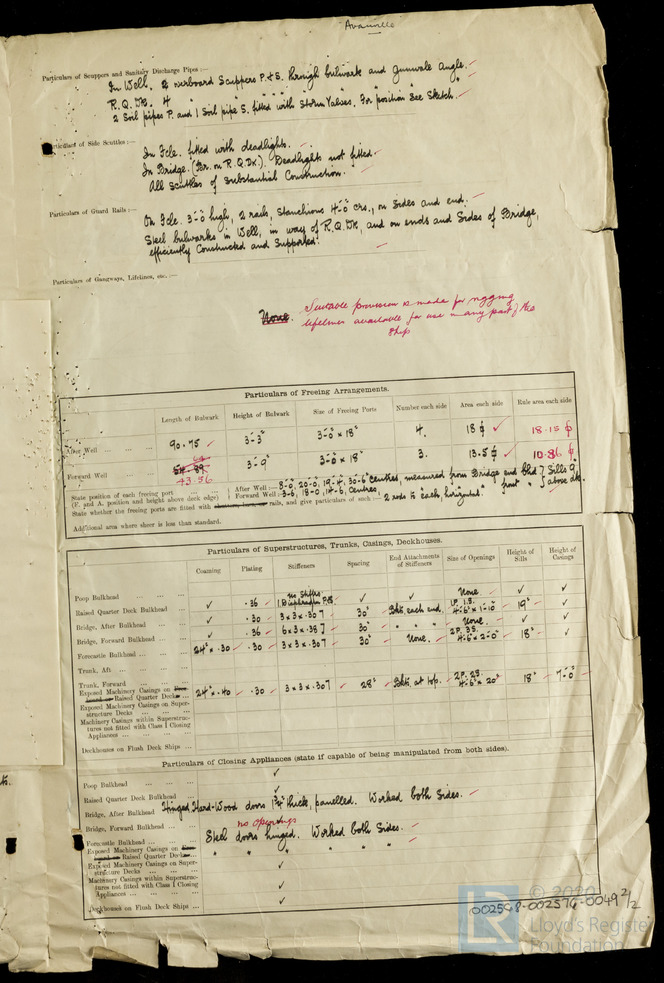 Avanville
Particulars of Scuppers and Sanitary Discharge Pipes :—
In Well. 2 overboard Scuppers P & S. through bulwark and Gunwale Angle.
R.Q.Dk. 4 " " " " " "
2 Soil pipes P. and 1 Soil pipe S. fitted with Storm Valves. For position See Sketch.
Particulars of Side Scuttles :—
In Fcle. fitted with deadlights.
In Bridge. (Br. on R.Q.Dk.). Deadlights not fitted.
All Scuttles of Substantial Construction.
Particulars of Guard Rails :—
On Fcle. 3'-0" high, 2 rails, Stanchions 4'-0" crs., on Sides and end.
Steel bulwarks in Well, in way of R.Q.Dk, and on ends and Sides of Bridge,
efficiently Constructed and Supported.
Particulars of Gangways, Lifelines, etc. :—
None. Suitable provision is made for rigging
lifelines available for use in any part of the
ship
Particulars of Freeing Arrangements.
Length of Bulwark Height of Bulwark Size of Freeing Ports Number each side Area each side Rule area each side
After Well 90.75 3'-3" 3'-0" x 18" 4. 18 18.15
Forward Well 43.36 3'-9" 3'-0" x 18" 3. 13.5 10.86
State position of each freeing port (F. and A. position and height above deck edge) After Well :— 8-0, 20-0, 19-4, 30-6 Centres, measured from Bridge end Bhd Sills 9"
Forward Well :— 3-6, 18-0, 14-6, Centres, " " " front " above dk.
State whether the freeing ports are fitted with rails, and give particulars of each :— 2 rods to each, horizontal
Additional area where sheer is less than standard.
Particulars of Superstructures, Trunks, Casings, Deckhouses.
Coaming Plating Stiffeners Spacing End Attachments of Stiffeners Size of Openings Height of Sills Height of Casings
Poop Bulkhead
Raised Quarter Deck Bulkhead ✓ .36 No Stiffrs 1 Diaphragm P&S ✓ ✓ None. ✓ ✓
Bridge, After Bulkhead ✓ .30 3 x 3 x .30 30" Bkts each end. 1P. 1S. 4'-6" x 1'-10 19" ✓
Bridge, Forward Bulkhead ✓ .36 6 x 3 x .38 30" " " " None. ✓ ✓
Forecastle Bulkhead 24" x .30 .30 3 x 3 x .30 30" None. 2P. 3S. 4'-6" x 2'-0" 18" ✓
Trunk, Aft
Trunk, Forward
Exposed Machinery Casings on Raised Quarter Deck 24" x .40 .30 3 x 3 x .30 28" Bkts. at top. 2P. 2S. 4'-6" x 20" 18" 7'-0"
Exposed Machinery Casings on Superstructure Decks
Machinery Casings within Superstructures not fitted with Class I Closing Appliances
Deckhouses on Flush Deck Ships
Particulars of Closing Appliances (state if capable of being manipulated from both sides).
Poop Bulkhead ✓
Raised Quarter Deck Bulkhead ✓
Bridge, After Bulkhead Hinged Hard-Wood doors 1¾" thick, panelled. Worked both Sides.
Bridge, Forward Bulkhead no openings
Forecastle Bulkhead Steel doors hinged. Worked both Sides.
Exposed Machinery Casings on Raised Quarter Deck " " " " " "
Exposed Machinery Casings on Superstructure Decks ✓
Machinery Casings within Superstructures not fitted with Class I Closing Appliances ✓
Deckhouses on Flush Deck Ships ✓
002598-002576-0049 2/2
LR © 2020
Lloyd's Register
Foundation